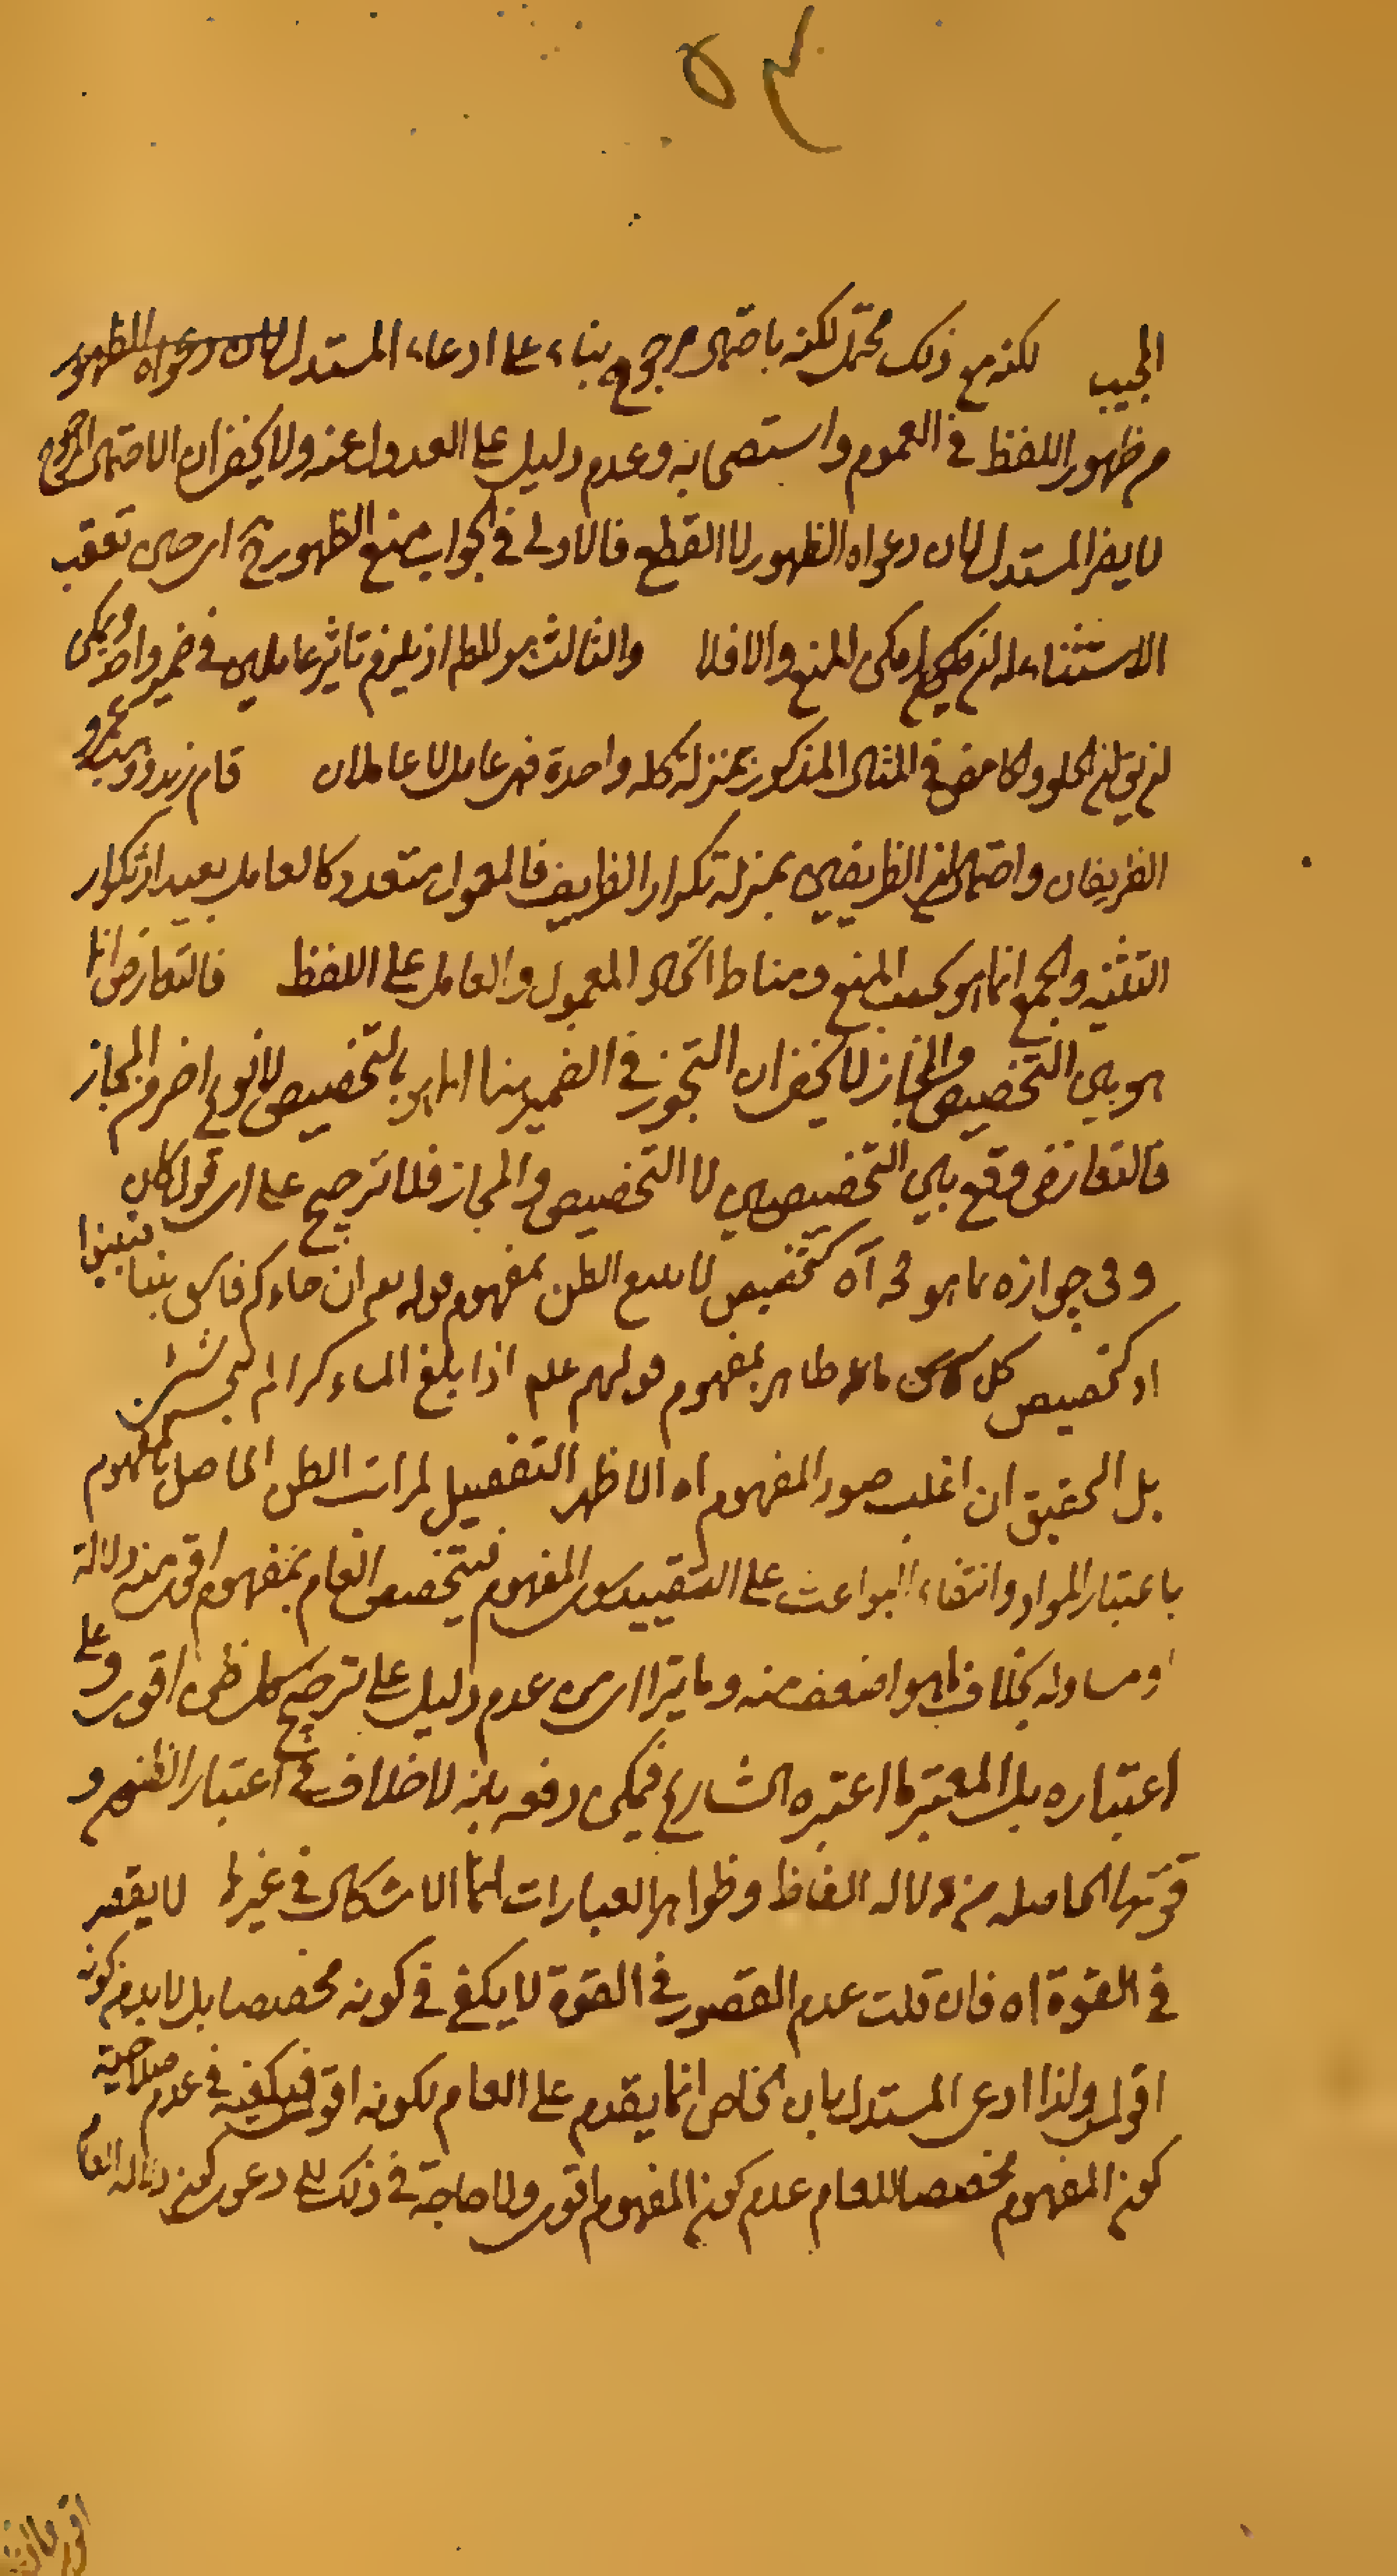 المجيب لكنه مع ذلك محتمل لكنه باحتمال مرجوح بناء على ادعاء المستدل لان دعواه الظهور
من ظهور اللفظ في العموم واستصحابه وعدم دليل على العدول عنه ولا يخفى ان الاحتمال المرجوح
لا يضر المستدل لان دعواه الظهور لا القطع فالاولى في الجواب منع الظهور ح اى حين تعقب
الاستثناء له امكن المنع والا فلا والثالث اذ يلزم تاثير عاملين في ضمير واحد ويمكن
ان يق ان الحلو والحامض في المثال المذكور بمنزلة كلمة واحدة فهى عامل لا عاملان قام زيد وذهب عمرو
الظريفان واحتمال ان الظريفين بمنزلة تكرار الظريف فالمعمول متعدد كالعامل بعيد اذ تكرار
التثنيه والجمع انما هو بحسب المعنى ومناط اتحاد المعمول والعامل على اللفظ فالتعارض انما
هو بين التخصيص والمجاز لا يخفى ان التجوز في الضمير هنا انما هو بالتخصيص لا نوع اخر من المجاز
فالتعارض وقع بين التخصيصين لا التخصيص والمجاز فلا ترجيح على اى قول كان
وفى جوازه بما هو حجة آه كتخصيص بمفهوم قوله تعم ان جاءكم فاسق بنبا فتبينوا
او كتخصيص كل ماء طاهر بمفهوم قولهم علم اذا بلغ الماء كرا لم ينجسه شئ
بل التحقيق ان اغلب صور المفهوم اه الاظهر التفصيل لمراتب الظن الحاصل بالمفهوم
باعتبار المواد وانتفاء البواعث على التقييد سوى المفهوم فيتخصص العام بمفهوم اقوى منه دلالة
او مساو له بخلاف ما هو اضعف منه وما يترااى من عدم دليل على ترجيح كل ظن اقوى وعلى
اعتباره بل المعتبر ما اعتبره الشارع فيمكن دفعه بانه لا خلاف في اعتبار الظنون و
قوتها الحاصله من دلاله الفاظ وظواهر العبارات انما الاشكال في غيرها لا يقصر
في القوة اه فان قلت عدم القصور في القوة لا يكفى في كونه مخصصا بل لا بد من كونه
اقوى ولذا ادعى المستدل بان الخاص انما يقدم على العام لكونه اقوى فيكفيه في عدم صلاحية
كون المفهوم مخصصا للعام عدم كون المفهوم اقوى ولا حاجة في ذلك الى دعوى كون دلاله العام